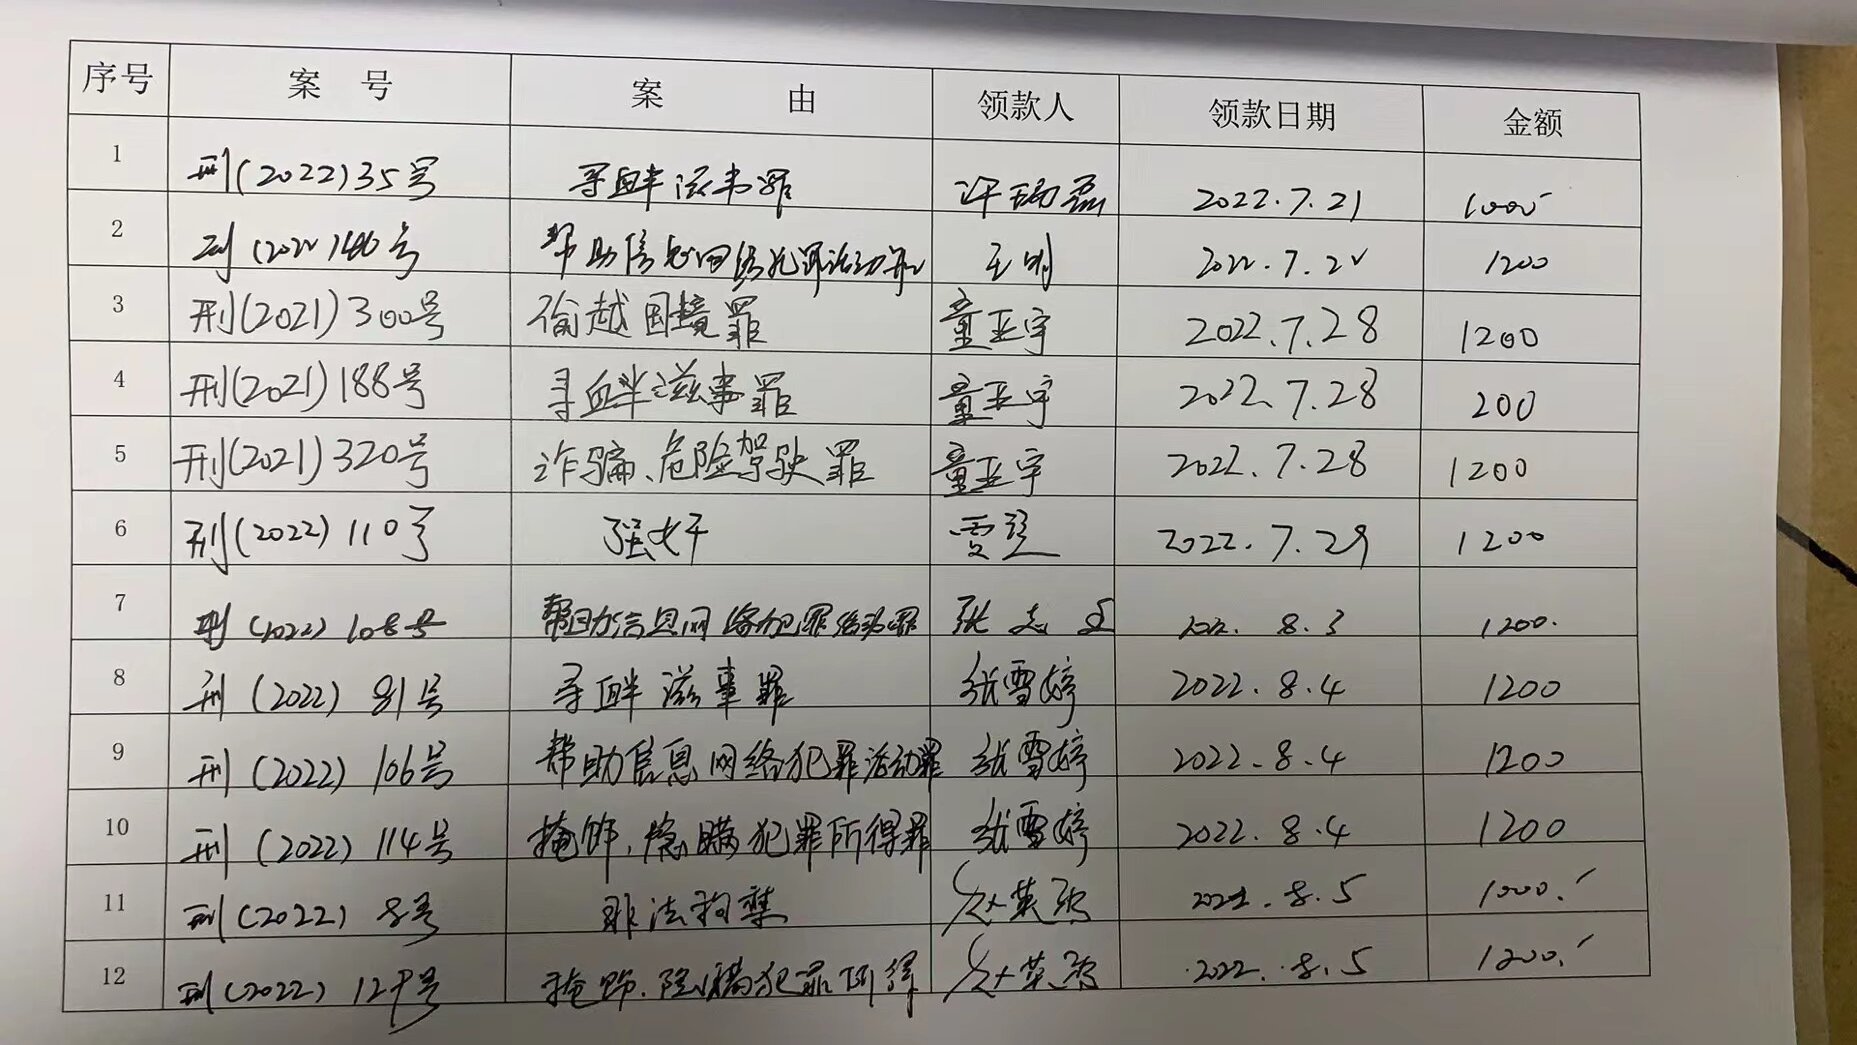 序号 案 号 案 由 领款人 领款日期 金额
1 刑(2022)35号 寻衅滋事罪 许瑞磊 2022.7.21 1000
2 刑(2022) 号 帮助信息网络犯罪活动罪 王 2022.7.22 1200
3 刑(2021)300号 偷越国境罪 童亚宇 2022.7.28 1200
4 刑(2021)188号 寻衅滋事罪 童亚宇 2022.7.28 200
5 刑(2021)320号 诈骗、危险驾驶罪 童亚宇 2022.7.28 1200
6 刑(2022)110号 强奸 贾 2022.7.29 1200
7 刑(2022)108号 帮助信息网络犯罪活动罪 张志 2022.8.3 1200.
8 刑(2022)81号 寻衅滋事罪 张雪婷 2022.8.4 1200
9 刑(2022)106号 帮助信息网络犯罪活动罪 张雪婷 2022.8.4 1200
10 刑(2022)114号 掩饰、隐瞒犯罪所得罪 张雪婷 2022.8.4 1200
11 刑(2022)8号 非法拘禁 赵英 2022.8.5 1000.
12 刑(2022) 号 掩饰、隐瞒犯罪所得 赵英 2022.8.5 1200.